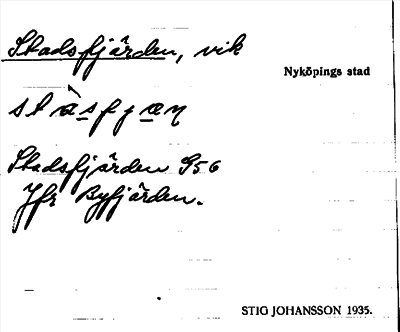 Stadsfjärden, vik
Nyköpings stad
stàsfjæṇ
Stadsfjärden G56
Jfr Byfjärden.
STIG JOHANSSON 1935.